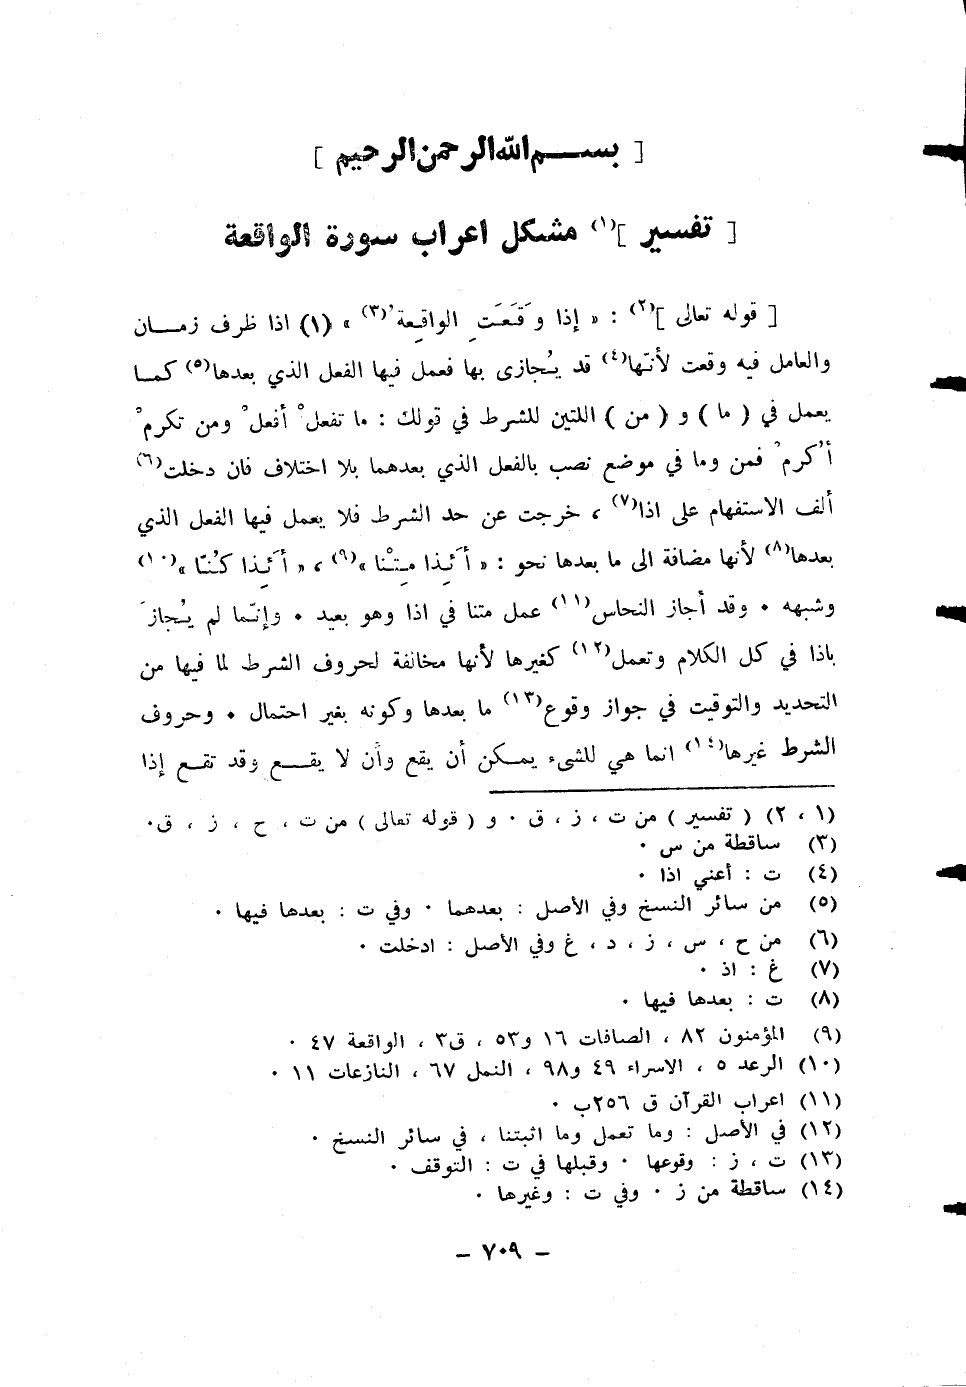 [ بســم الله الرحمن الرحيم ]
[ تفسير ](١) مشكل اعراب سورة الواقعة
[ قوله تعالى ](٢) : « إذا وَقَعَتِ الواقِعة ُ(٣) » (١) اذا ظرف زمــان
والعامل فيه وقعت لأنّها(٤) قد يُجازى بها فعمل فيها الفعل الذي بعدها(٥) كمــا
يعمل في ( ما ) و ( من ) اللتين للشرط في قولك : ما تفعلْ أفعلْ ومن تكرمْ
أُكرمْ فمن وما في موضع نصب بالفعل الذي بعدهما بلا اختلاف فان دخلت(٦)
ألف الاستفهام على اذا(٧) ، خرجت عن حد الشرط فلا يعمل فيها الفعل الذي
بعدها(٨) لأنها مضافة الى ما بعدها نحو : « أَئِذا مِتْنا »(٩) ، « أَئِذا كُنّا »(١٠)
وشبهه ٠ وقد أجاز النحاس(١١) عمل متنا في اذا وهو بعيد ٠ وإنّما لم يُجازَ
باذا في كل الكلام وتعمل(١٢) كغيرها لأنها مخالفة لحروف الشرط لما فيها من
التحديد والتوقيت في جواز وقوع(١٣) ما بعدها وكونه بغير احتمال ٠ وحروف
الشرط غيرها(١٤) انما هي للشىء يمــكن أن يقع وأن لا يقــع وقد تقــع إذا
(١ ، ٢) ( تفسير ) من ت ، ز ، ق ٠ و ( قوله تعالى ) من ت ، ح ، ز ، ق٠
(٣) ساقطة من س ٠
(٤) ت : أعني اذا ٠
(٥) من سائر النسخ وفي الأصل : بعدهما ٠ وفي ت : بعدها فيها ٠
(٦) من ح ، س ، ز ، د ، غ وفي الأصل : ادخلت ٠
(٧) غ : اذ ٠
(٨) ت : بعدها فيها ٠
(٩) المؤمنون ٨٢ ، الصافات ١٦ و٥٣ ، ق٣ ، الواقعة ٤٧ ٠
(١٠) الرعد ٥ ، الاسراء ٤٩ و٩٨ ، النمل ٦٧ ، النازعات ١١ ٠
(١١) اعراب القرآن ق ٢٥٦ب ٠
(١٢) في الأصل : وما تعمل وما اثبتنا ، في سائر النسخ ٠
(١٣) ت ، ز : وقوعها ٠ وقبلها في ت : التوقف ٠
(١٤) ساقطة من ز ٠ وفي ت : وغيرها ٠
– ٧٠٩ –